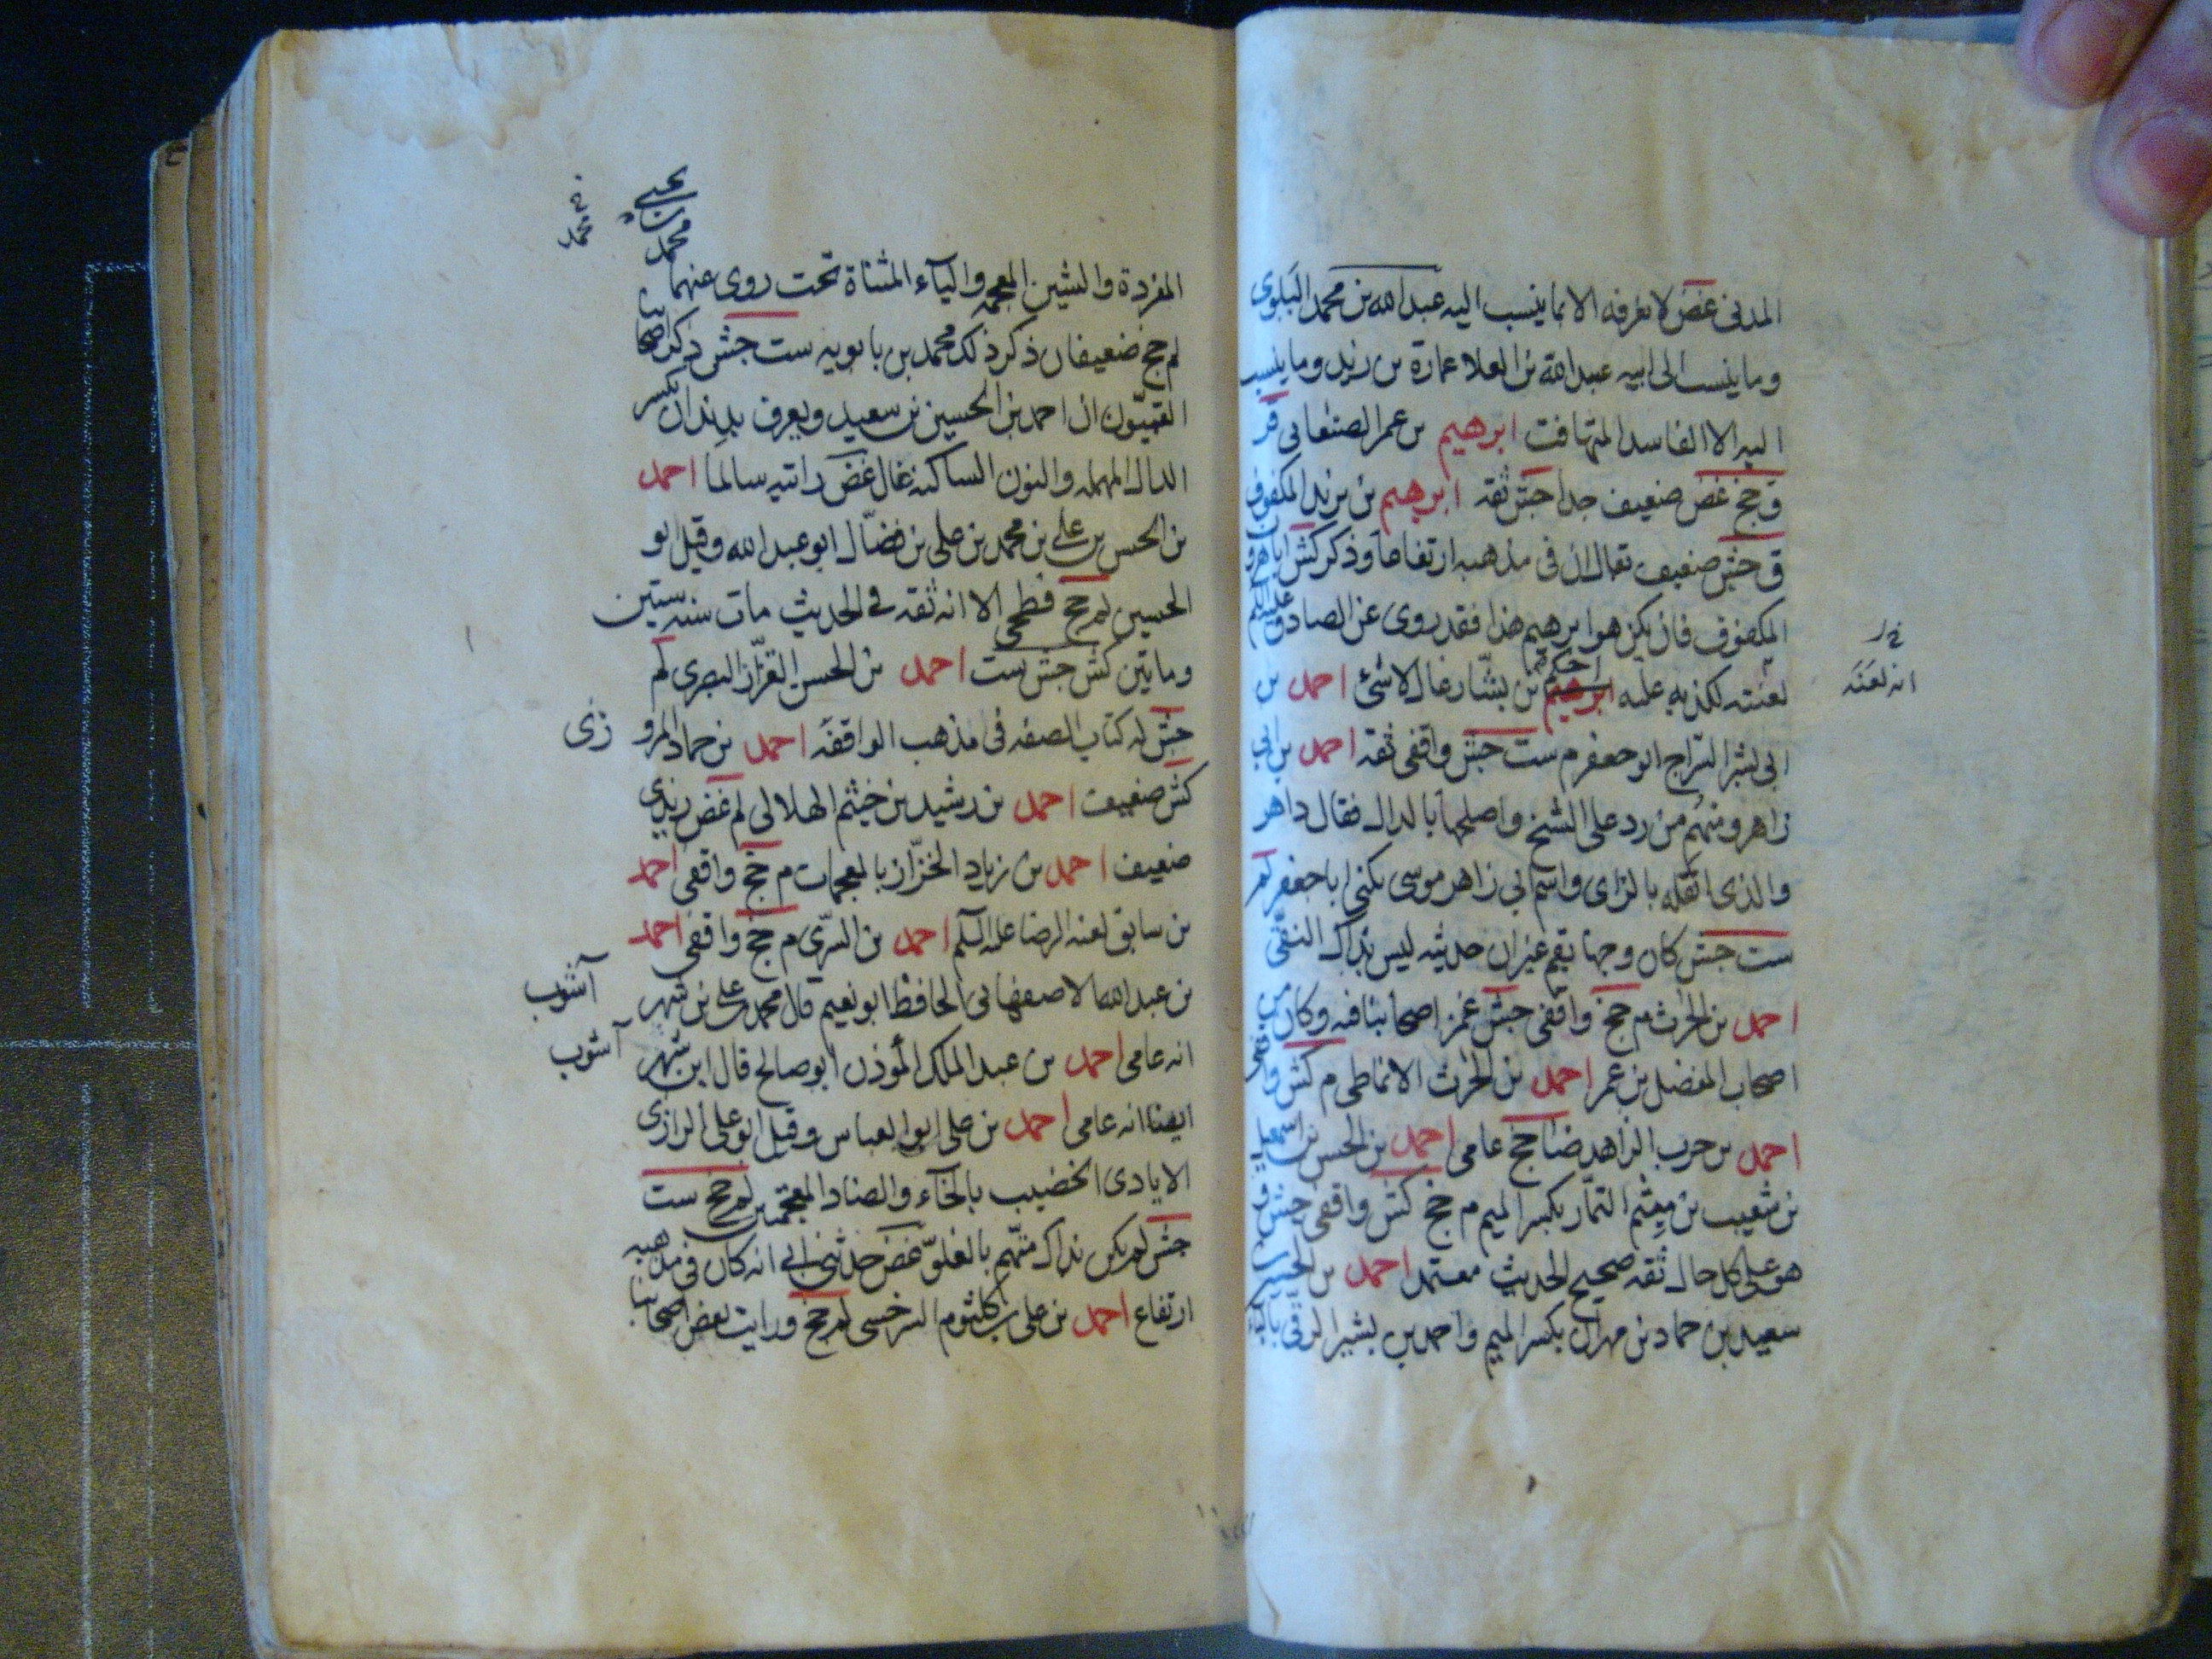 المدنى غض لا نعرفه الا بما ينسب اليه عبد الله بن محمد البلوى
وما ينسب الى ابيه عبد الله بن العلا عمارة بن زيد وما ينسب
اليه الا الفاسد المتهافت ابرهيم بن عمر الصنعانى قر
ق جخ غض ضعيف جدا جش ثقه ابرهيم بن يزيد المكفوف
ق جش ضعيف يقال ان فى مذهبه ارتفاعا وذكر كش ابا هرون
المكفوف فان يكن هو ابرهيم هذا فقد روى عن الصادق عليه السلم
لعنته لكذبه عليه احكم بن بشار غال لا شئ احمد بن
انه لعنه
ابى بشر السراج ابو جعفر م ست جش واقفى ثقه احمد بن ابى
زاهر ومنهم من رد على الشيخ واصلحها بالدال فقال داهر
والذى انقله بالزاى واسم ابى زاهر موسى يكنى ابا جعفر لم
ست جش كان وجها بقم غير ان حديثه ليس بذاك النقى
احمد بن الحرث م جخ واقفى جش غمز اصحابنا فيه وكان من
اصحاب المفضل بن عمر احمد بن الحرث الانماطى م كش واقفى
احمد بن حرب الزاهد ضا جخ عامى احمد بن الحسن بن اسمعيل
بن شعيب بن ميثم التمار بكسر الميم م جخ كش واقفى جش و
هو على كل حال ثقه صحيح الحديث معتمد احمد بن الحسين بن
سعيد بن حماد بن مهران بكسر الميم واحمد بن بشير الرقى بالباء
المفردة والشين المعجمه والياء المثناة تحت روى عنهما
محمد بن يحيى
محمد
لم جخ ضعيفان ذكر ذلك محمد بن بابويه ست جش ذكر اصحابنا
القميون ان احمد بن الحسين بن سعيد ويعرف بدندان بكسر
الدال المهمله والنون الساكنه غال غض راتيه سالما احمد
بن الحسن بن على بن محمد بن على بن فضال ابو عبد الله وقيل ابو
الحسين لم جخ فطحى الا انه ثقه فى الحديث مات سنه ستين
وماتين كش جش ست احمد بن الحسن القزاز البصرى لم
جش له كتاب الصفه فى مذهب الواقفه احمد بن حماد المروزى
كش ضعيف احمد بن رشيد بن خيثم الهلالى لم غض زيدى
ضعيف احمد بن زياد الخزاز بالمعجمات م جخ واقفى احمد
بن سابق لعنه الرضا عليه السلم احمد بن السرى م جخ واقفى احمد
بن عبد الله الاصفهانى الحافظ ابو نعيم قال محمد بن على بن شهر آشوب
انه عامى احمد بن عبد الملك المؤذن ابو صالح قال ابن شهر آشوب
ايضا انه عامى احمد بن على ابو العباس وقيل ابو على الرازى
الايادى الخضيب بالخاء والضاد المعجمتين لم جخ ست
جش لم يكن بذاك متهم بالغلو غض حدثنى ابى انه كان فى مذهبه
ارتفاع احمد بن على بن كلثوم السرخسى لم جخ ورايت بعض اصحابنا